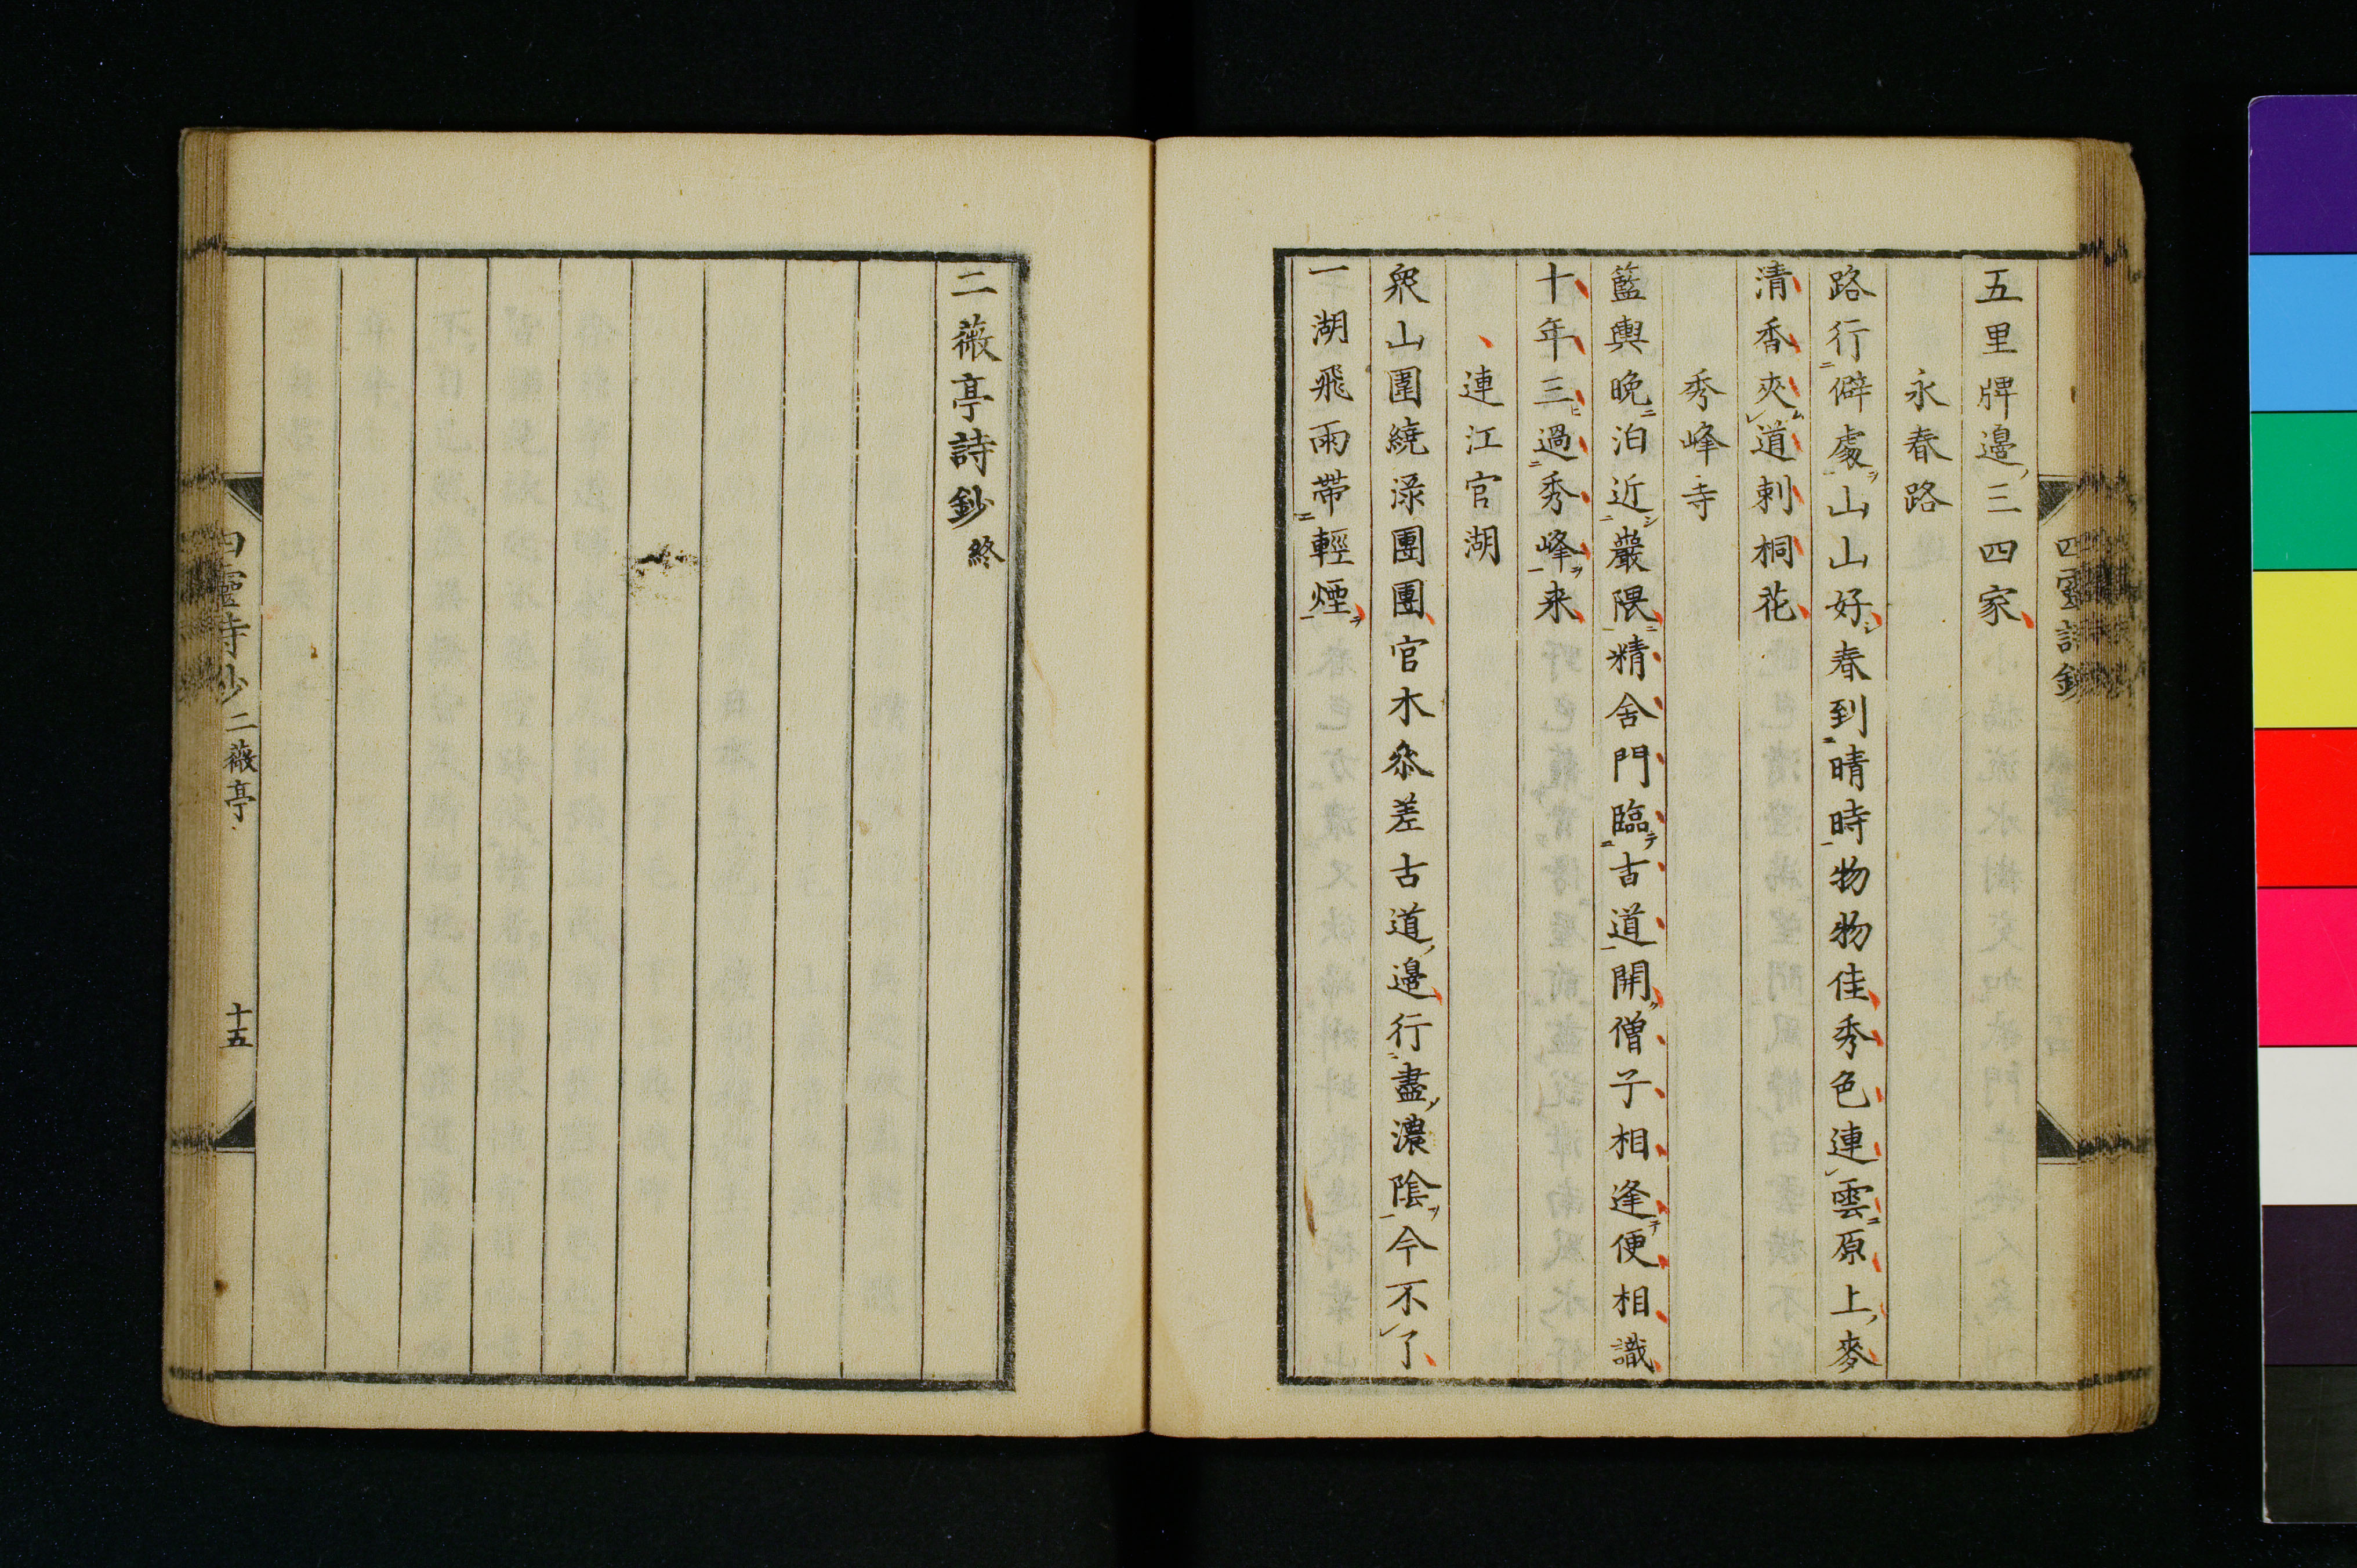 五里牌邉三四家
永春路
路行僻處山山好春到晴時物物佳秀色連雲原上麥
清香夾道刺桐花
秀峰寺
籃輿晚泊近巖隈精舍門臨古道開僧子相逢便相識
十年三過秀峰来
連江官湖
衆山圍繞渌團團官木叅差古道邉行盡濃陰今不了
一湖飛雨帶輕煙
四靈詩鈔
二薇亭詩鈔終
四靈詩鈔二薇亭
十五